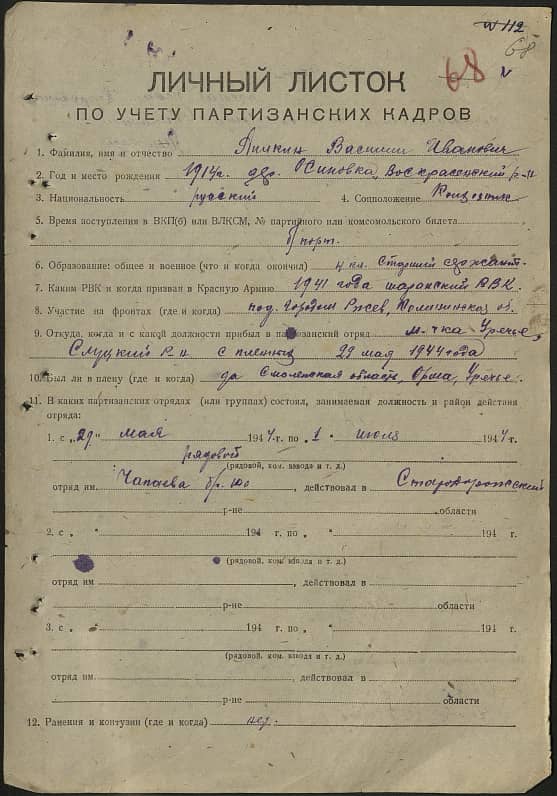 № 112
68
68
ЛИЧНЫЙ ЛИСТОК
ПО УЧЕТУ ПАРТИЗАНСКИХ КАДРОВ
1. Фамилия, имя и отчество Василий Иванович
2. Год и место рождения 1914г. дер. Осиновка, Воскресенский р-н
3. Национальность русский 4. Соцположение
5. Время поступления в ВКП(б) или ВЛКСМ, № партийного или комсомольского билета
б/парт.
6. Образование: общее и военное (что и когда окончил) 4 кл. Старший сержант.
7. Каким РВК и когда призван в Красную Армию 1941 года шаранский РВК
8. Участие на фронтах (где и когда) под. Городом Ржев, об.
9. Откуда, когда и с какой должности прибыл в партизанский отряд м-чка Уречье,
Слуцкий р-н с плена 29 мая 1944 года
10. Был ли в плену (где и когда) да Смоленская область, Орша, Уречье.
11. В каких партизанских отрядах (или группах) состоял, занимаемая должность и район действия
отряда:
1. с „29" мая 1944 г. по „1 " июля 1944 г.
рядовой
(рядовой, ком. взвода и т. д.)
отряд им. Чапаева бр. 64, действовал в Стародорожский
р-не области
2. с „ " 194 г. по „ " 194 г.
(рядовой, ком. взвода и т. д.)
отряд им , действовал в
р-не области
3. с „ " 194 г. по „ " 194 г.
(рядовой, ком. взвода и т. д.)
отряд им. , действовал в
р-не области
12. Ранения и контузии (где и когда) нет.